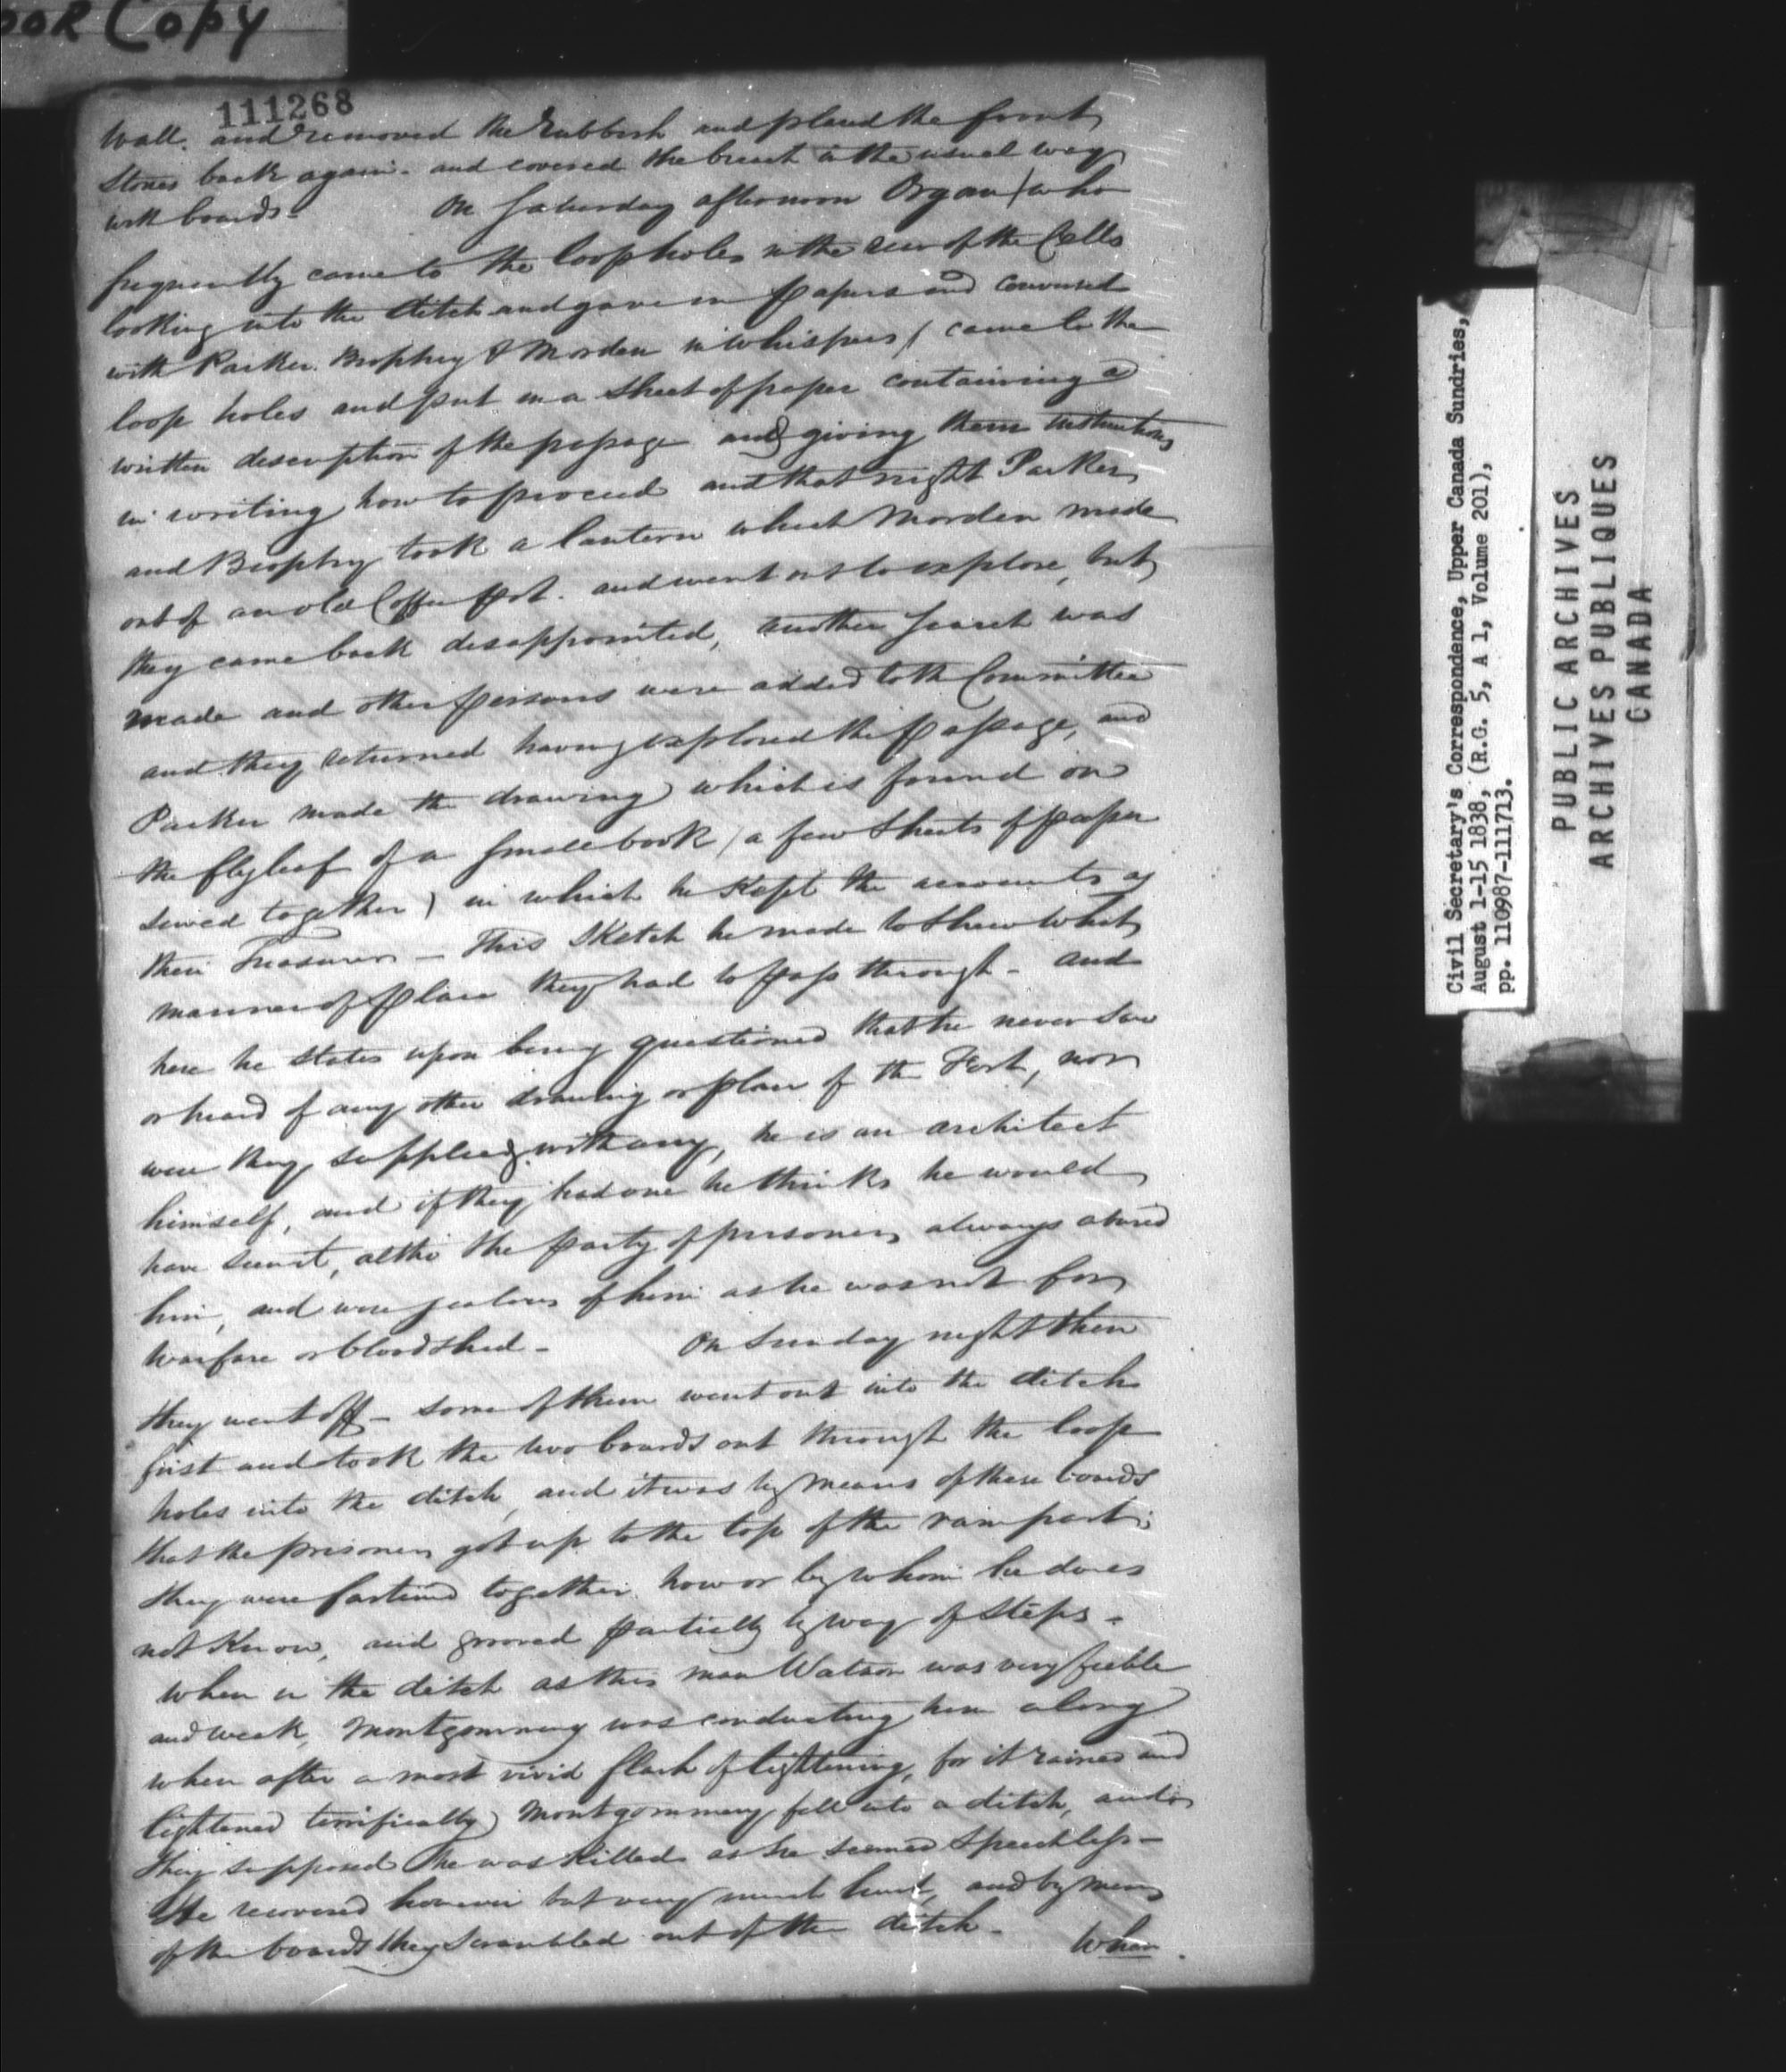 OOR COPY
111268
Wall. and removed the Rubbish and placed the front
Stones back again. and covered the breach in the usual way
with boards - On Saturday afternoon Organ (who
frequently came to the loop holes in the rear of the Cells
looking into the ditch and gave in papers and conversed
with Parker. Brophey & Morden in whispers) came to the
loop holes and put in a sheet of paper containing a
written description of the passage and giving them instructions
in writing how to proceed and that night Parker
and Brophy took a lantern which Morden made
out of an old Coffee pot. and went out to explore, but
they came back disappointed, another search was
made and other persons were added to the Committee
and they returned having explored the passage, and
Parker made the drawing which is found on
the fly leaf of a small book (a few sheets of paper
sewed together) in which he Kept the accounts as
their Treasurer - This Sketch he made to Shew what
manner of place they had to pass through - and
here he states upon being questioned that he never saw
or heard of any other drawing or plan of the Fort, nor
were they supplied with any, he is an architect
himself, and if they had one he thinks he would
have seen it, altho' the party of prisoners always abused
him, and were jealous of him as he was not for
warfare or bloodshed - On Sunday night then
they went off - some of them went out into the ditch
first and took the two boards out through the loop
holes into the ditch, and it was by means of these boards
that the prisoners got up to the top of the rampart;
they were fastened together. how or by whom he does
not Know, and grooved partially by way of steps -
when in the ditch as this man Watson was very feeble
and weak, Montgommery was conducting him along
when after a most vivid flash of lightening, for it rained and
lightened terrifically) Montgommery fell into a ditch, and
they supposed he was Killed as he seemed Speechless -
He recovered however but very much hurt, and by means
of the boards they scrambled out of the ditch -
When
Civil Secretary's Correspondence, Upper Canada Sundries,
August 1-15 1838, (R.G. 5, A 1, Volume 201),
pp. 110987-111713.
PUBLIC ARCHIVES
ARCHIVES PUBLIQUES
CANADA